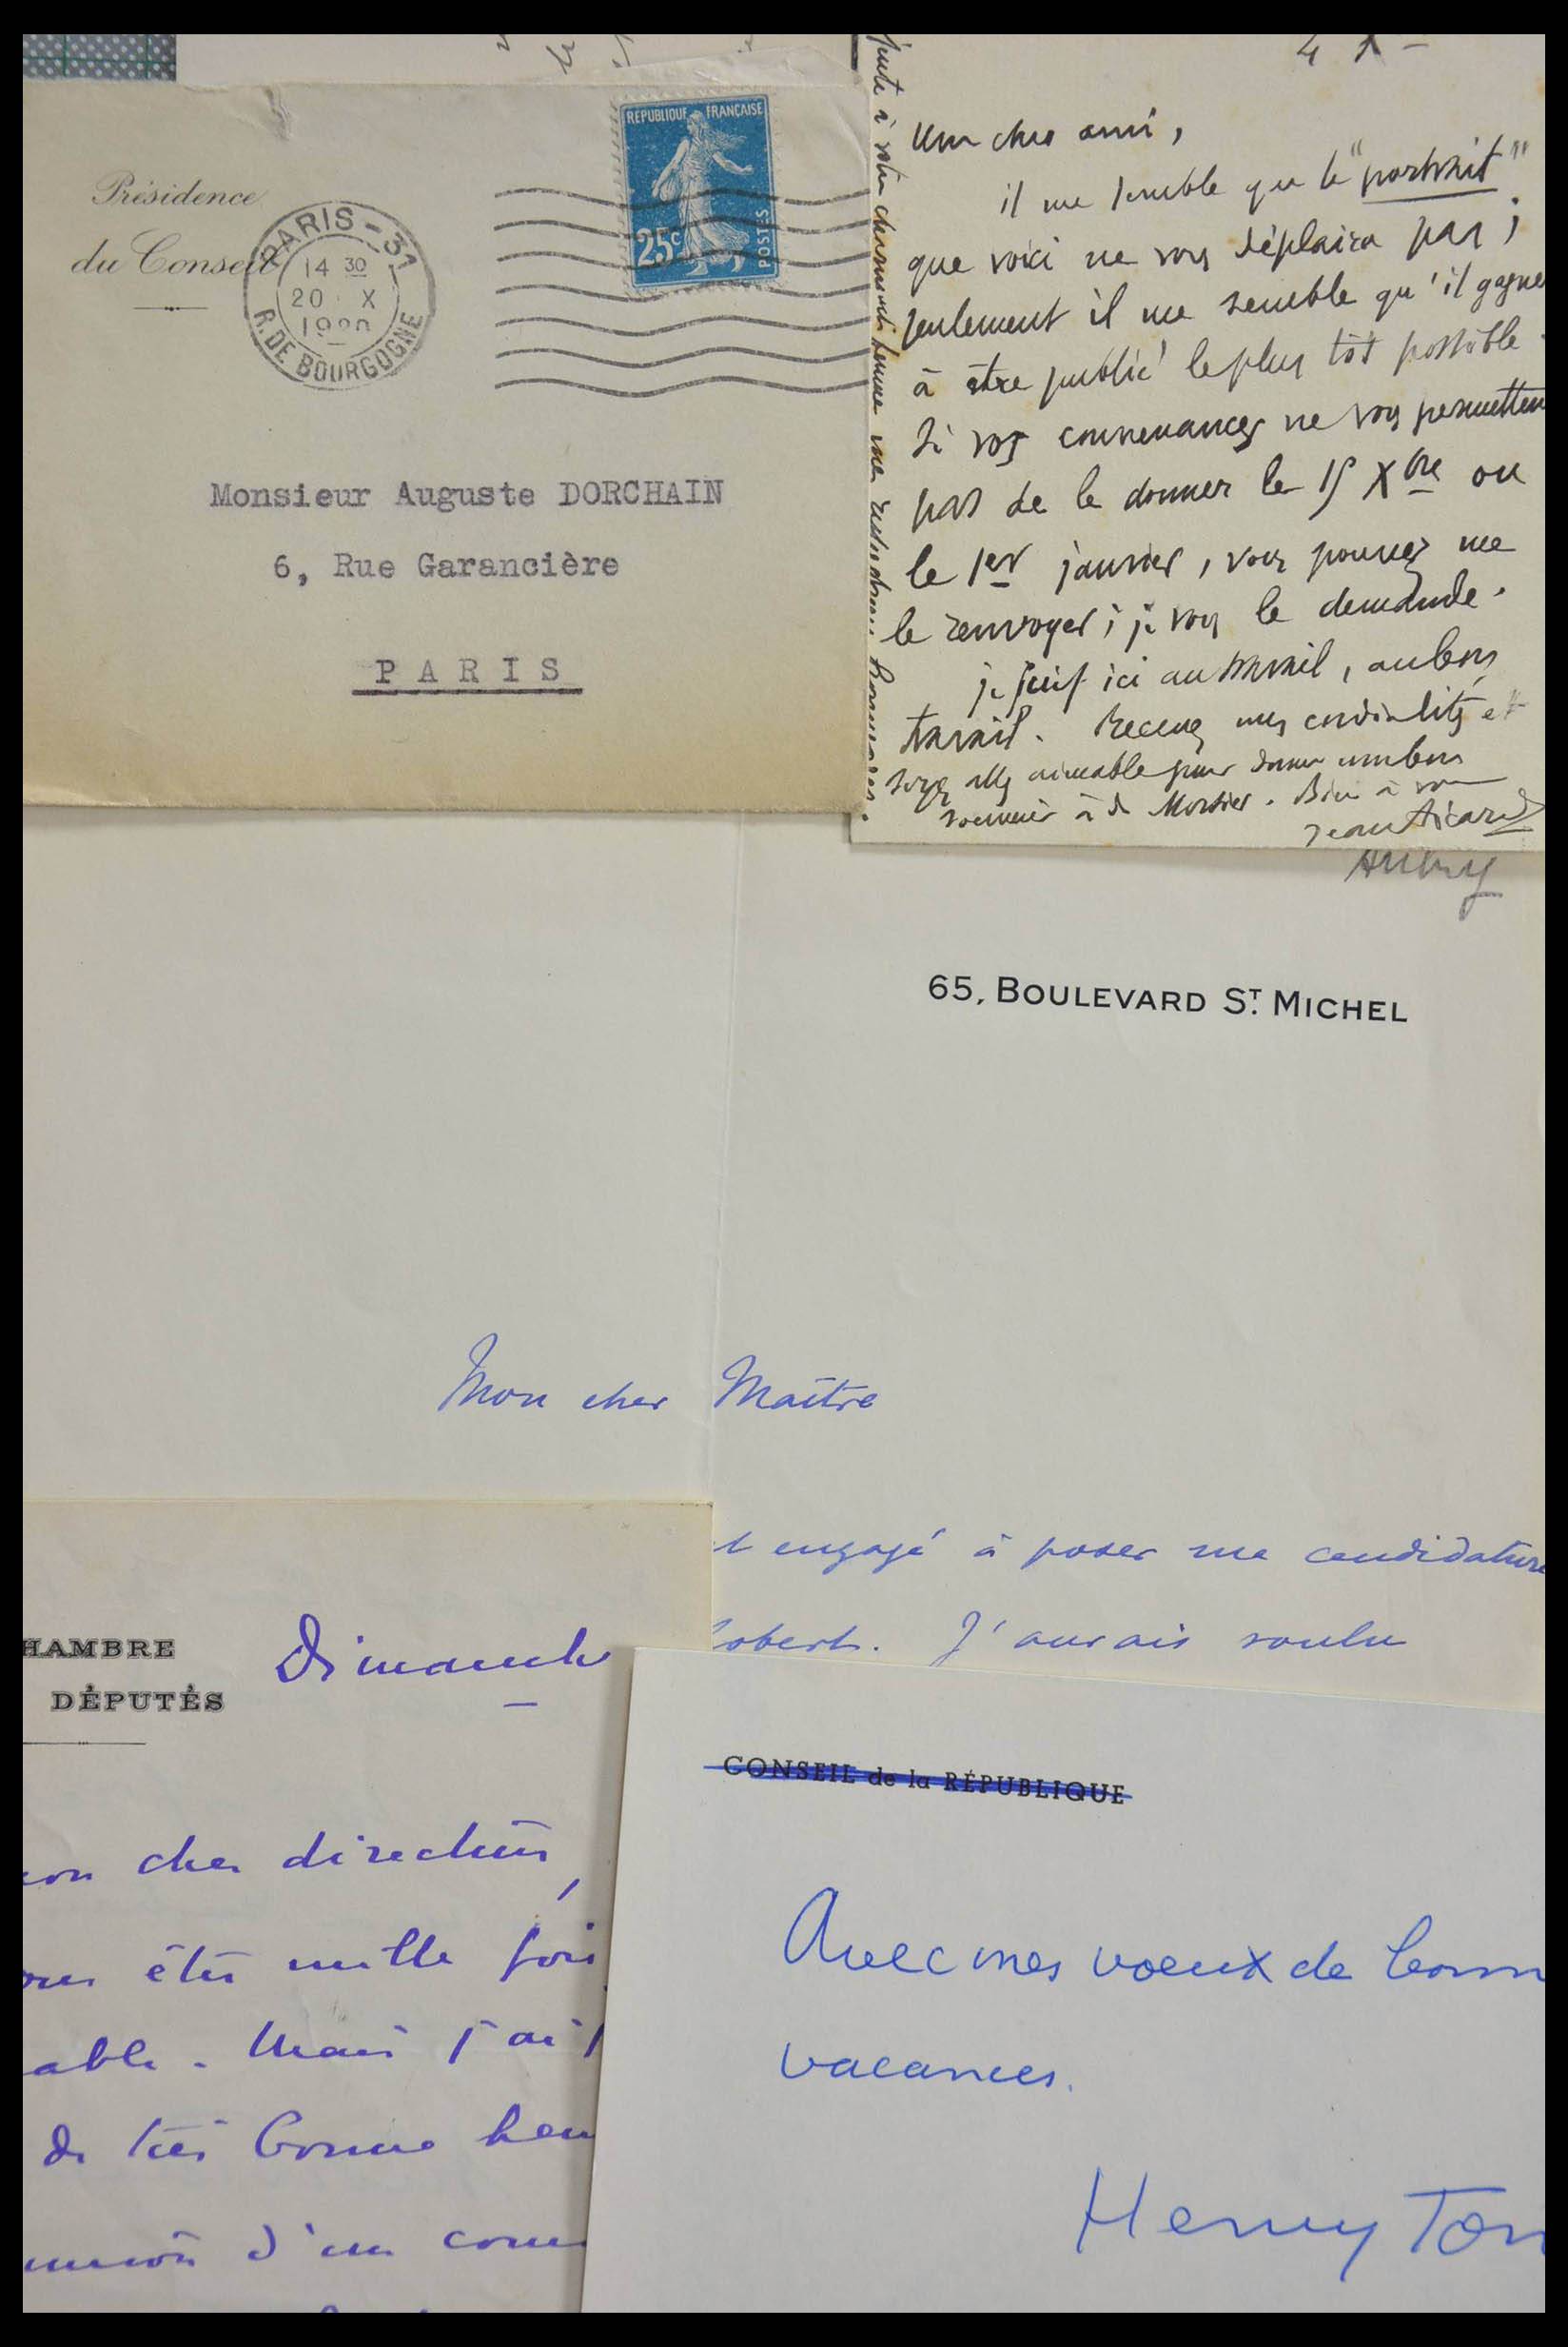 Présidence
du Conseil
PARIS - 31
14 30
20 X
R. DE BOURGOGNE
REPUBLIQUE FRANÇAISE
25c
POSTES
Monsieur Auguste DORCHAIN
6, Rue Garancière
PARIS
Mon cher ami,
il me semble que le "portrait"
que voici ne vous déplaira pas ;
seulement il me semble qu'il gagne
à être publié le plus tôt possible.
Si vos convenances ne vous permetten
pas de le donner le 15 Xbre ou
le 1er janvier, vous pouvez me
le renvoyer ; je vous le demande.
je suis ici au travail, au bon
travail. Recevez mes cordialités et
soyez assez aimable pour donner un bon
souvenir à de Morsier. Bien à vous
Jean Aicard
65, BOULEVARD ST. MICHEL
Mon cher Maître
t engagé à poser ma candidature
obert. J'aurais voulu
HAMBRE
DÉPUTÉS
Dimanche
on cher directeur,
ous êtes mille fois
able. Mais j'ai
de très bonne heu
d'un com
CONSEIL de la RÉPUBLIQUE
Avec mes voeux de bonn
vacances.
Henry Tor